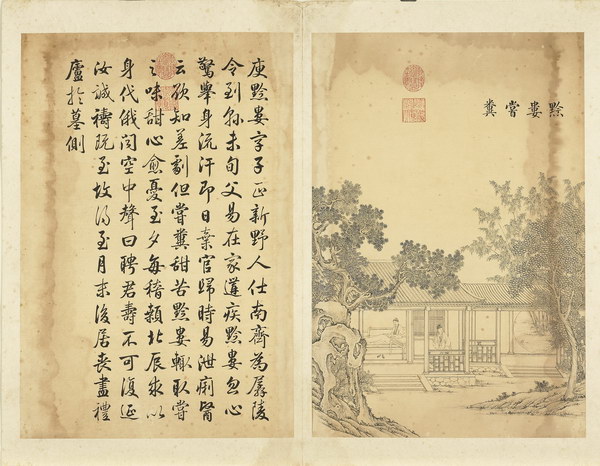 黔婁嘗糞
庾黔婁字子正新野人仕南齊為孱陵
令到縣未旬父易在家遘疾黔婁忽心
驚舉身流汗即日棄官歸時易泄痢醫
云欲知差劇但嘗糞甜苦黔婁輒取嘗
之味甜心愈憂至夕每稽顙北辰求以
身代俄聞空中聲曰聘君壽不可復延
汝誠禱既至故得至月末後居喪盡禮
廬於墓側